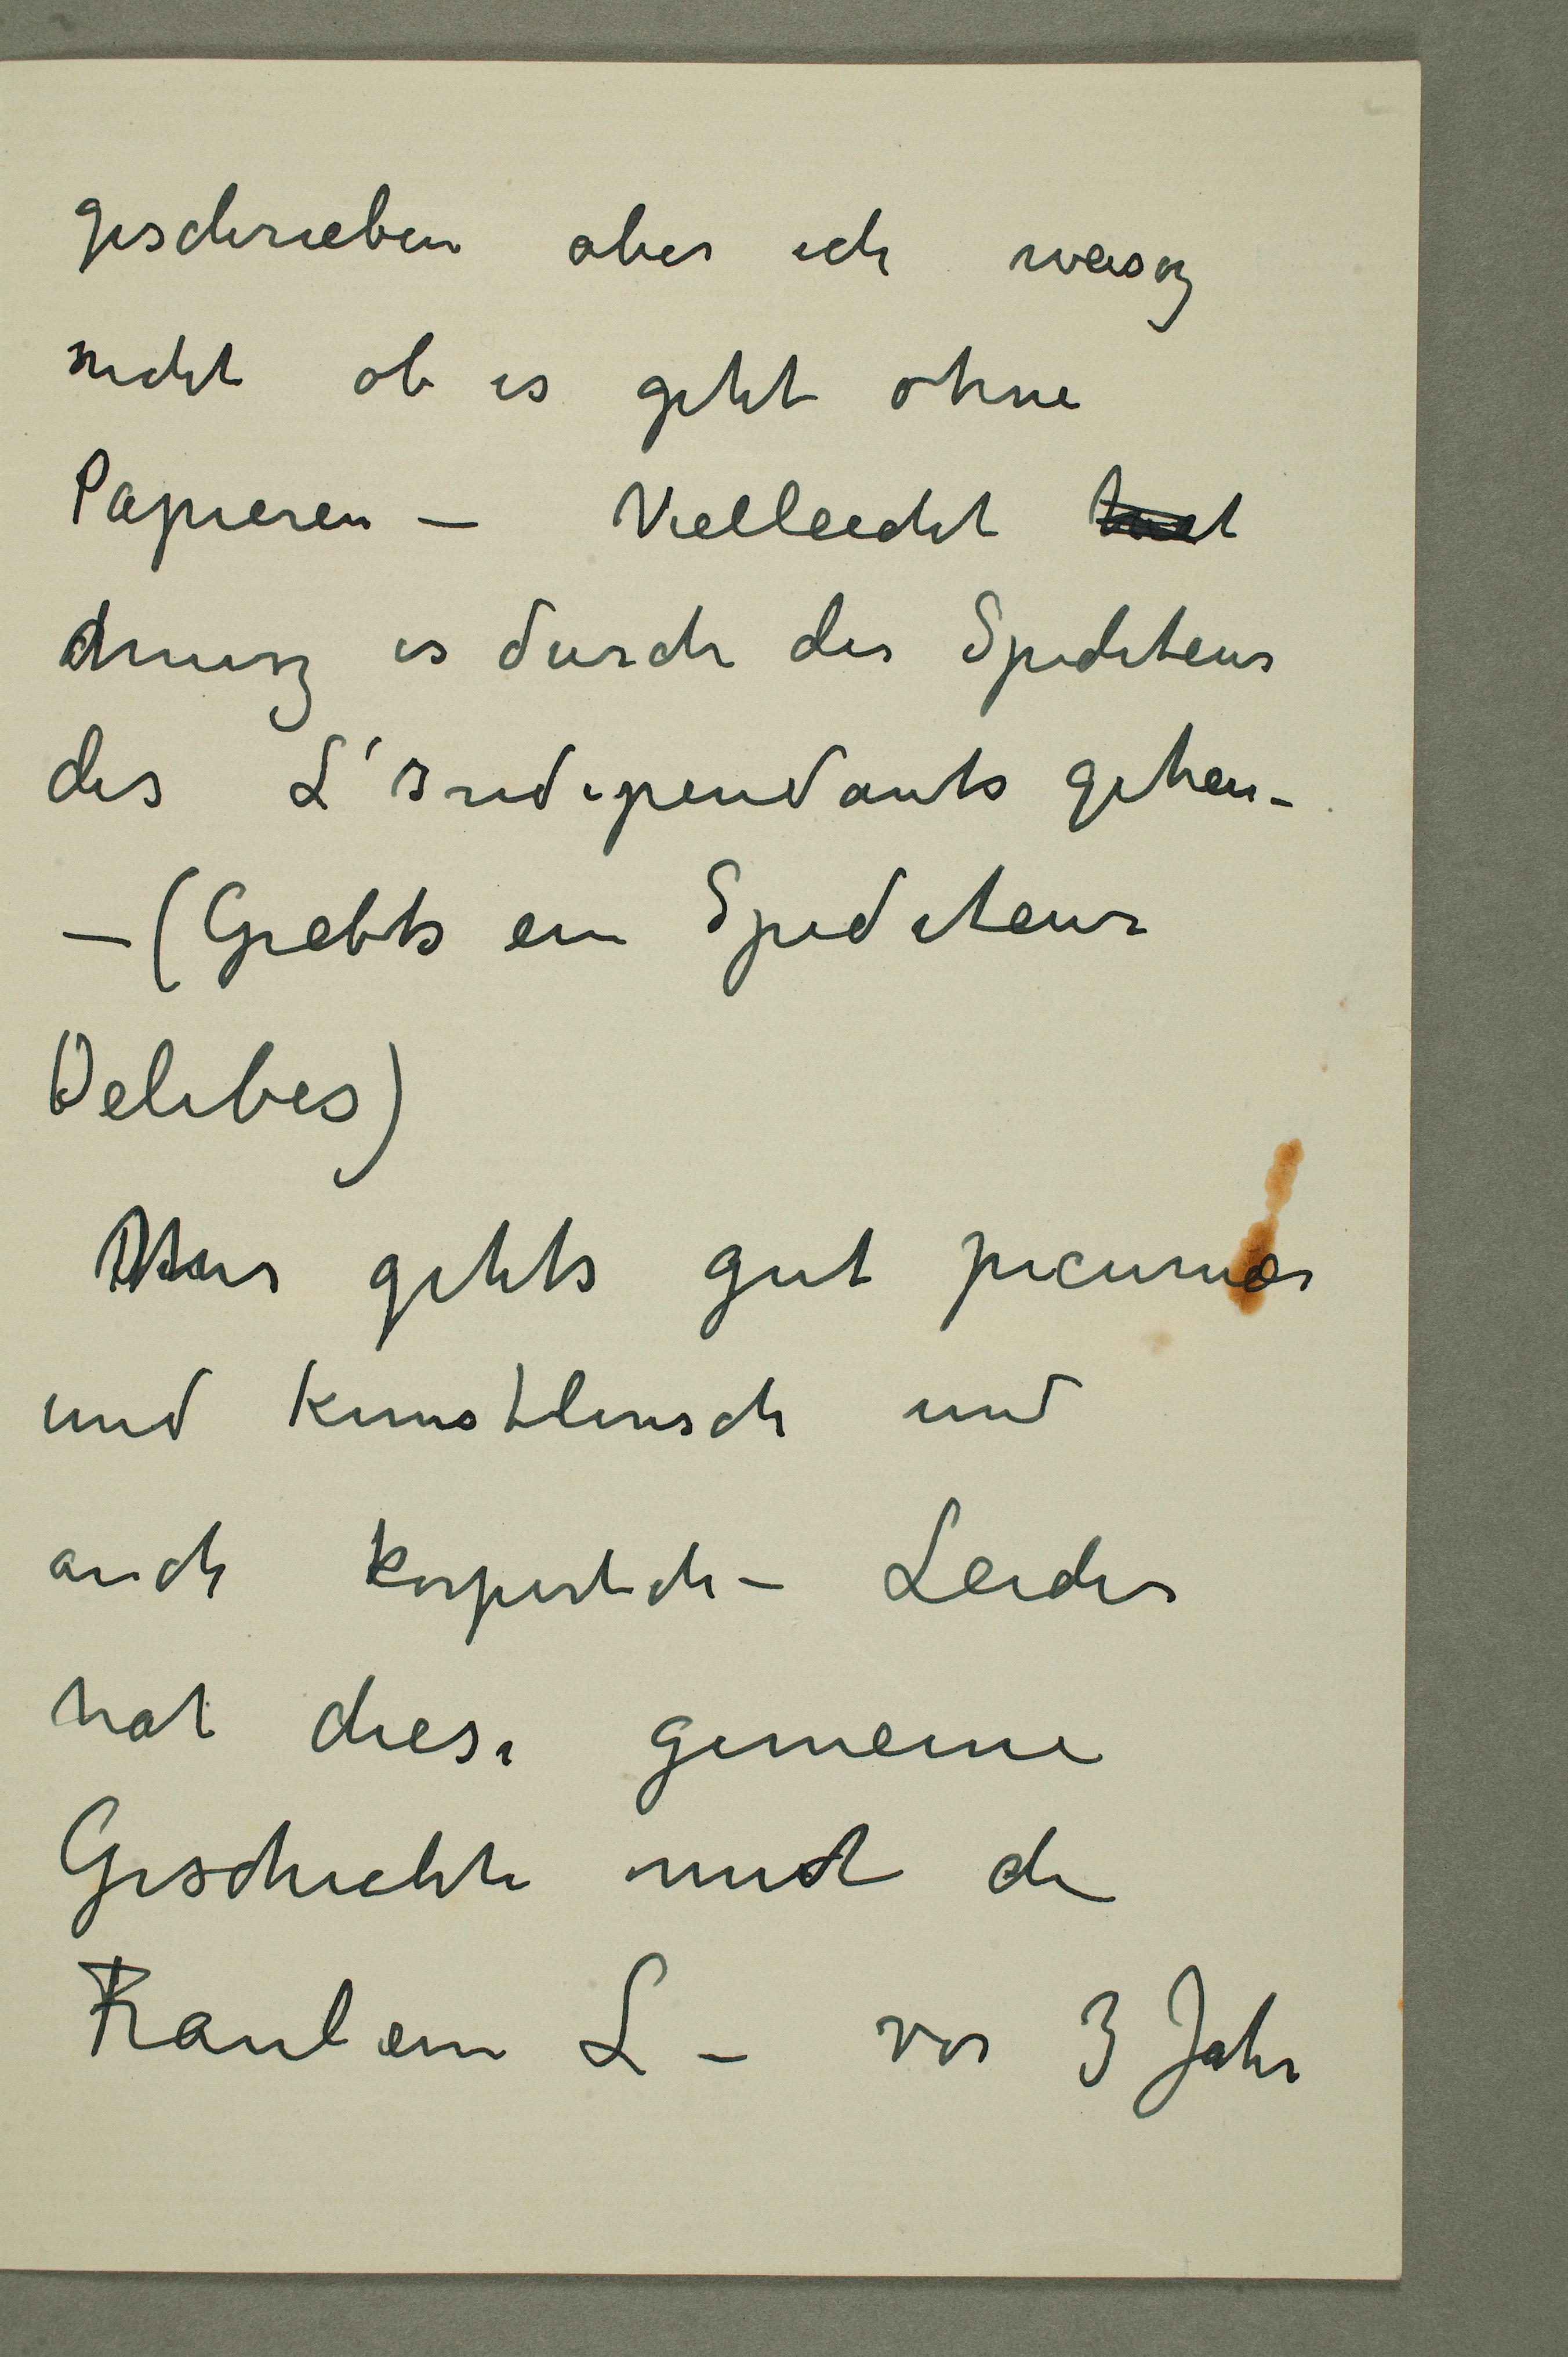 geschrieben aber ich weisz
nicht ob es geht ohne
Papieren — Vielleicht
musz es durch der Spediteur
des L'Independants gehen –
— (Giebts ein Spediteur
Delibes)
Mir gehts gut picuniær
und kunstlerisch und
auch körperlich – Leider
hat diese gemeine
Geschichte mit de
Fraulein L – vor 3 Jahr